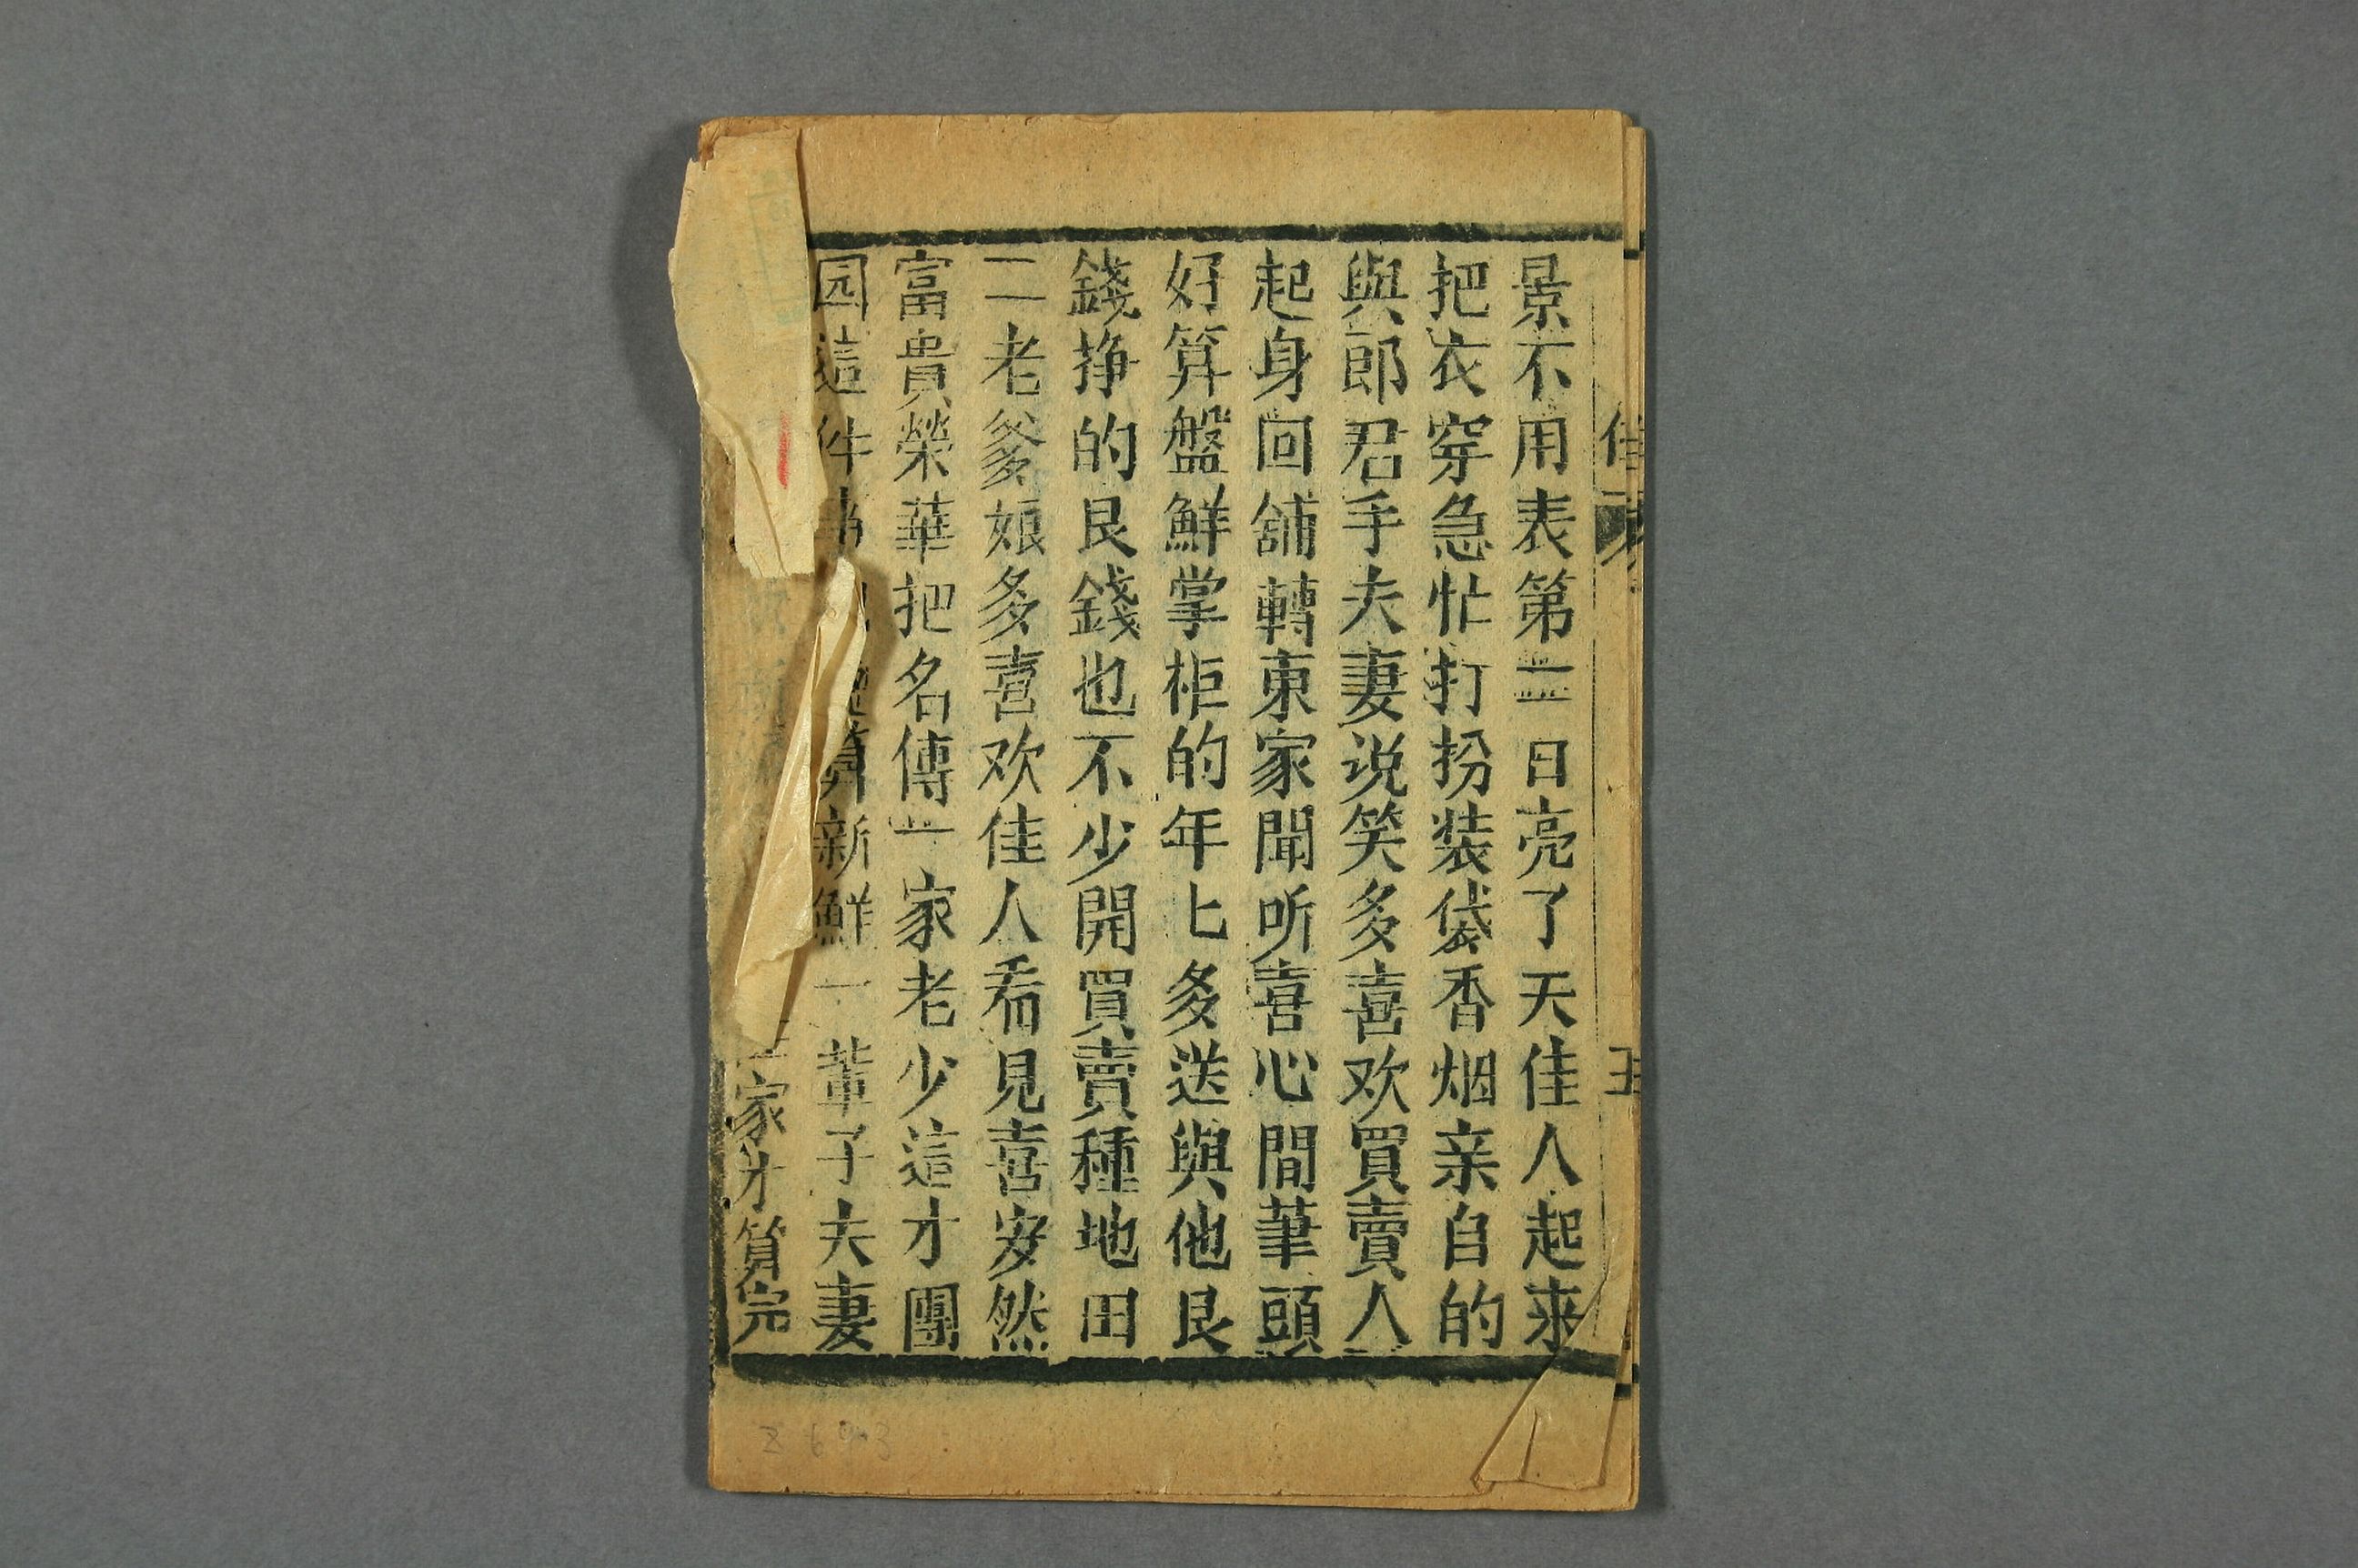 景不用表第二日亮了天佳人起来
把衣穿急忙打扮装袋香烟亲自的
與郎君手夫妻说笑多喜欢買賣人
起身回舖轉東家聞听喜心間筆頭
好算盤鮮掌柜的年匕多送與他艮
錢挣的艮錢也不少開買賣種地田
二老爹娘多喜欢佳人看見喜安然
富貴榮華把名傳一家老少這才團
园這件事 算新鮮一輩子夫妻
家才算完
五
Z 6903